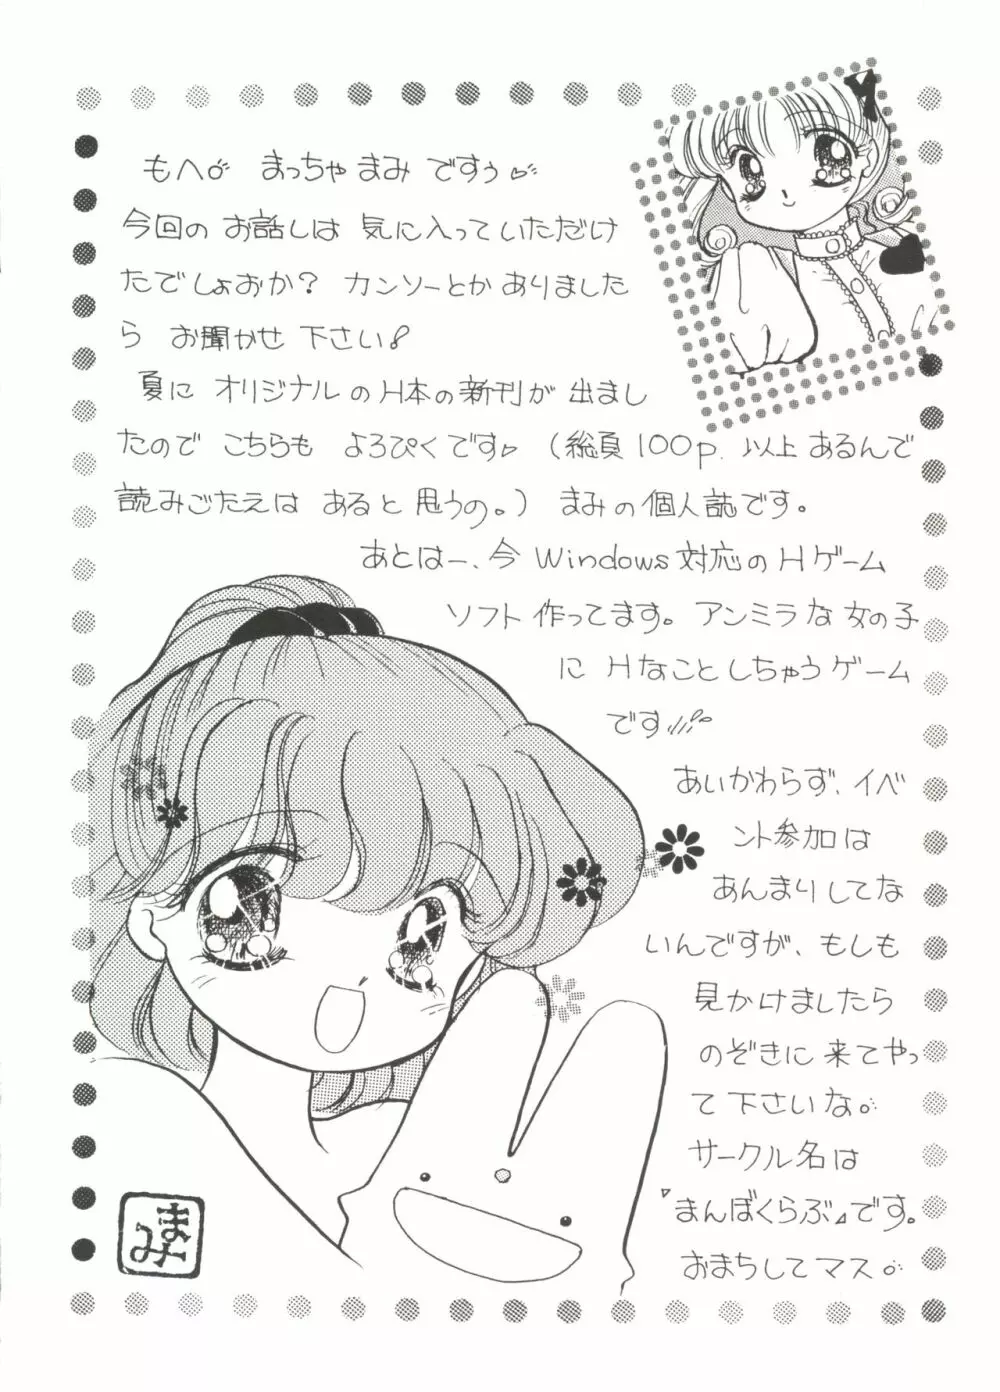 もへ♂ まっちゃまみですぅ♡
今回のお話しは 気に入っていただけ
たでしょおか？ カンソーとかありました
ら お聞かせ下さい！
夏に オリジナルのH本の新刊が出まし
たので こちらも よろぴくです♡ （総頁100p.以上あるんで
読みごたえは あると思うの。） まみの個人誌です。
あとはー、今 Windows対応のHゲーム
ソフト作ってます。アンミラな女の子
に Hなことしちゃうゲーム
です
あいかわらず、イベ
ント参加は
あんまりしてな
いんですが、もしも
見かけましたら
のぞきに来てやっ
て下さいな。
サークル名は
『まんぼくらぶ』です。
おまちしてマス。
まみ